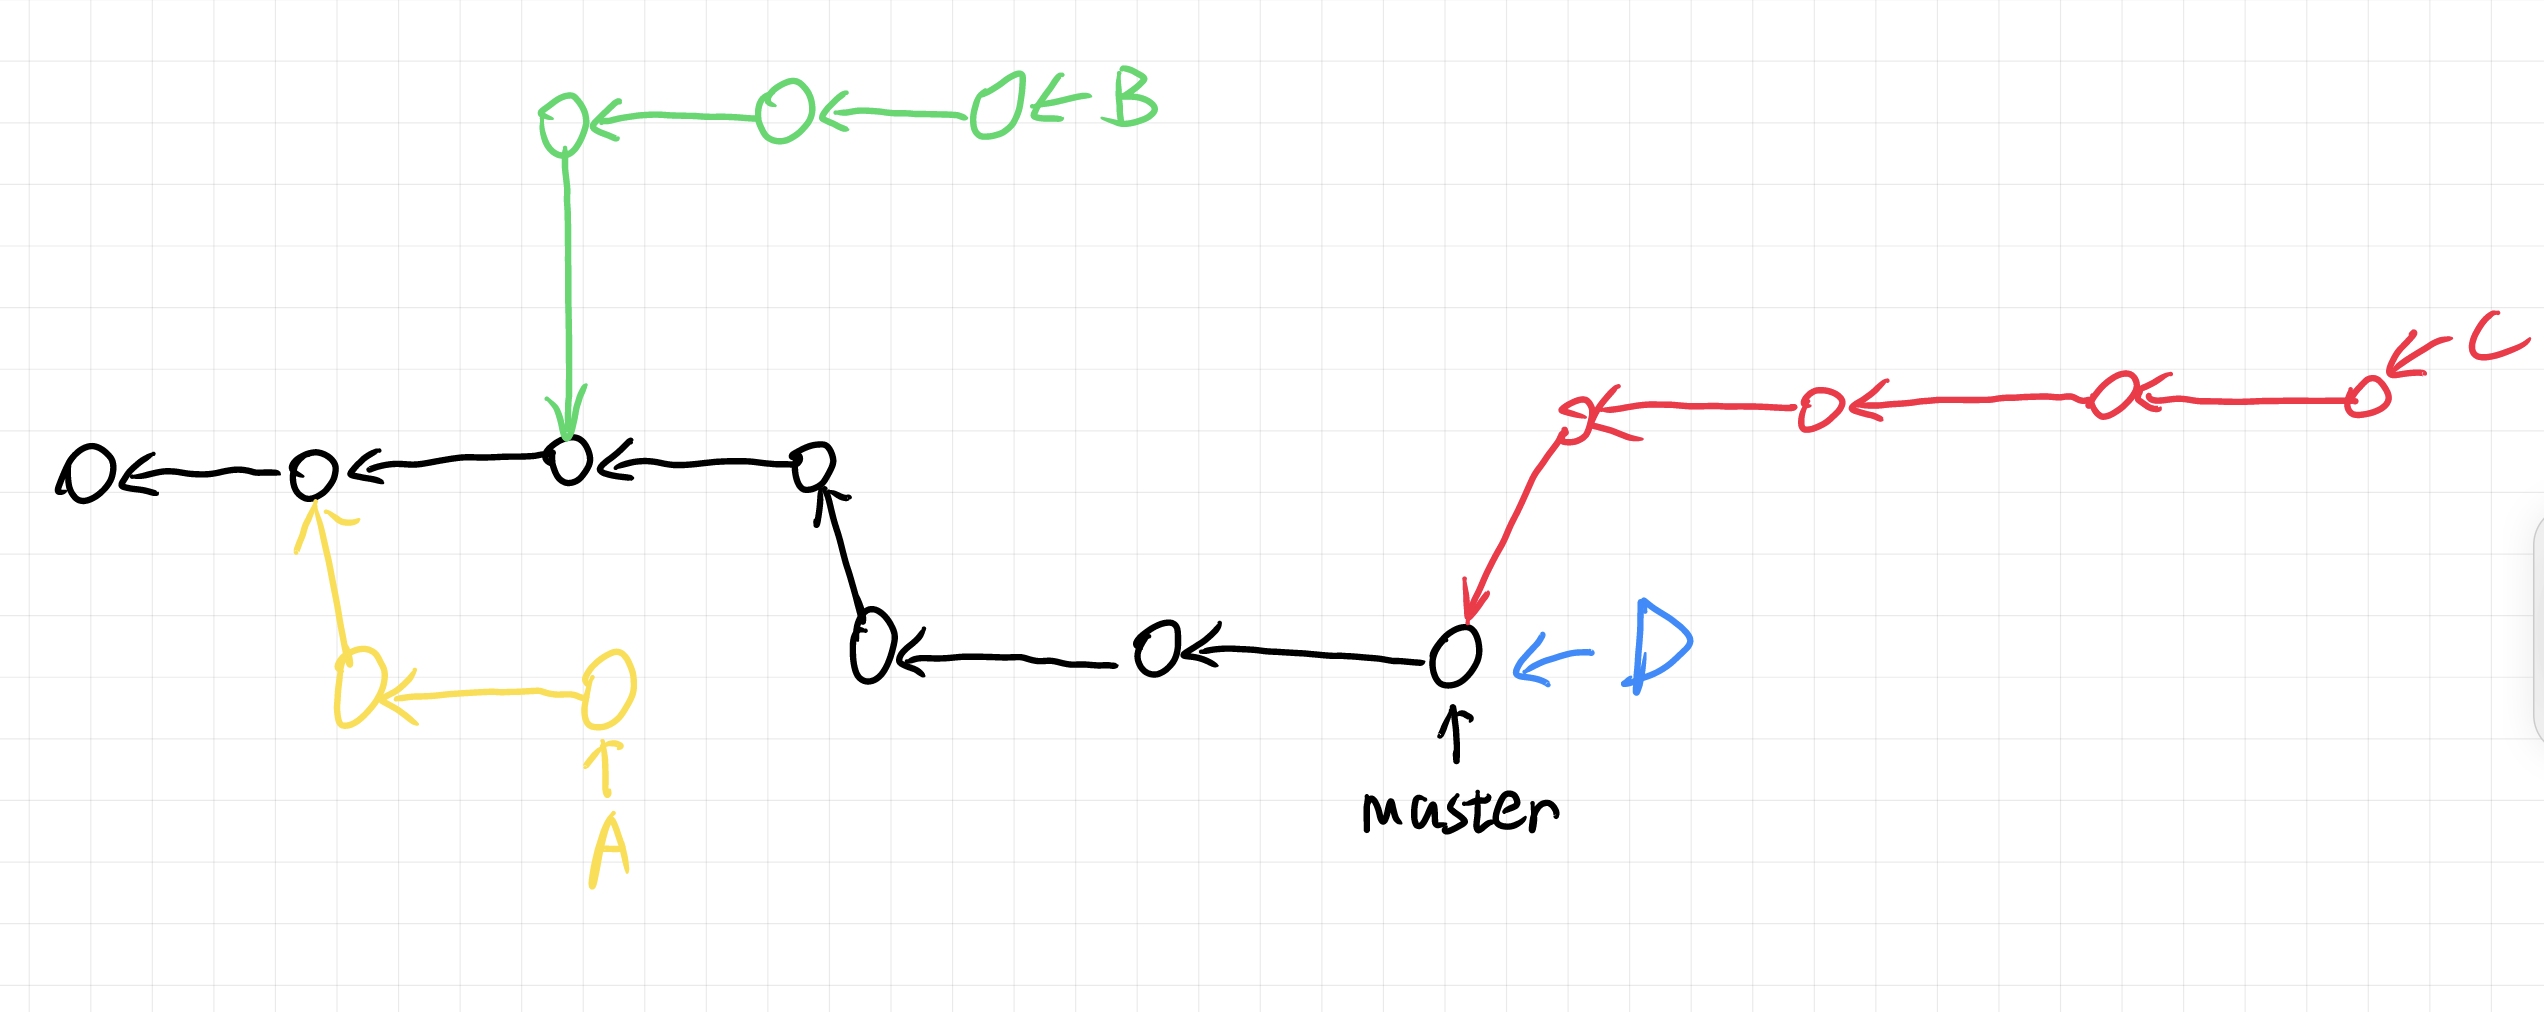 B
C
D
master
A